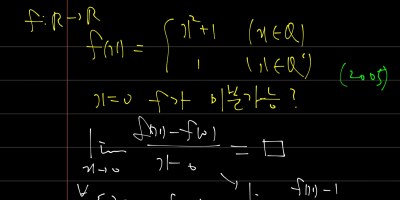 f: R→R
f(x) = { x²+1 (x∈Q)
1 (x∈Qᶜ)
(2005)
x=0 f가 미분가능?
lim x→0 f(x)-f(0) / x-0 = □
∀
f(x)-1